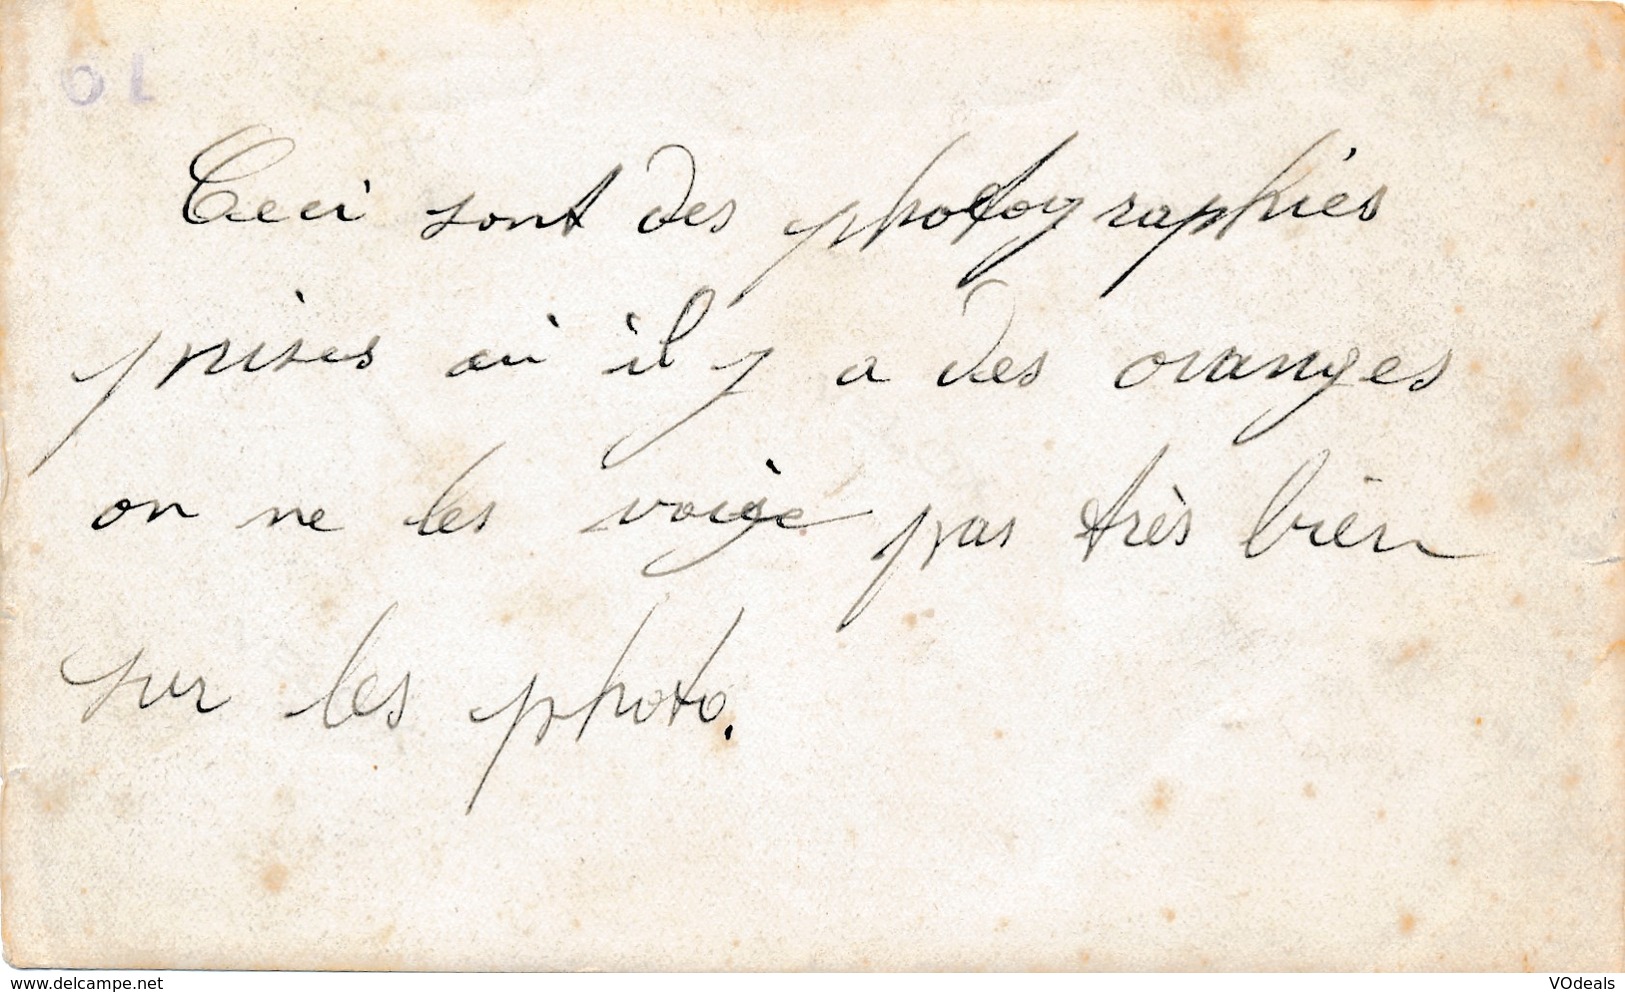 Ceci sont des photographies
prises où il y a des oranges
on ne les voige pas très bien
sur les photo.
www.delcampe.net
VOdeals